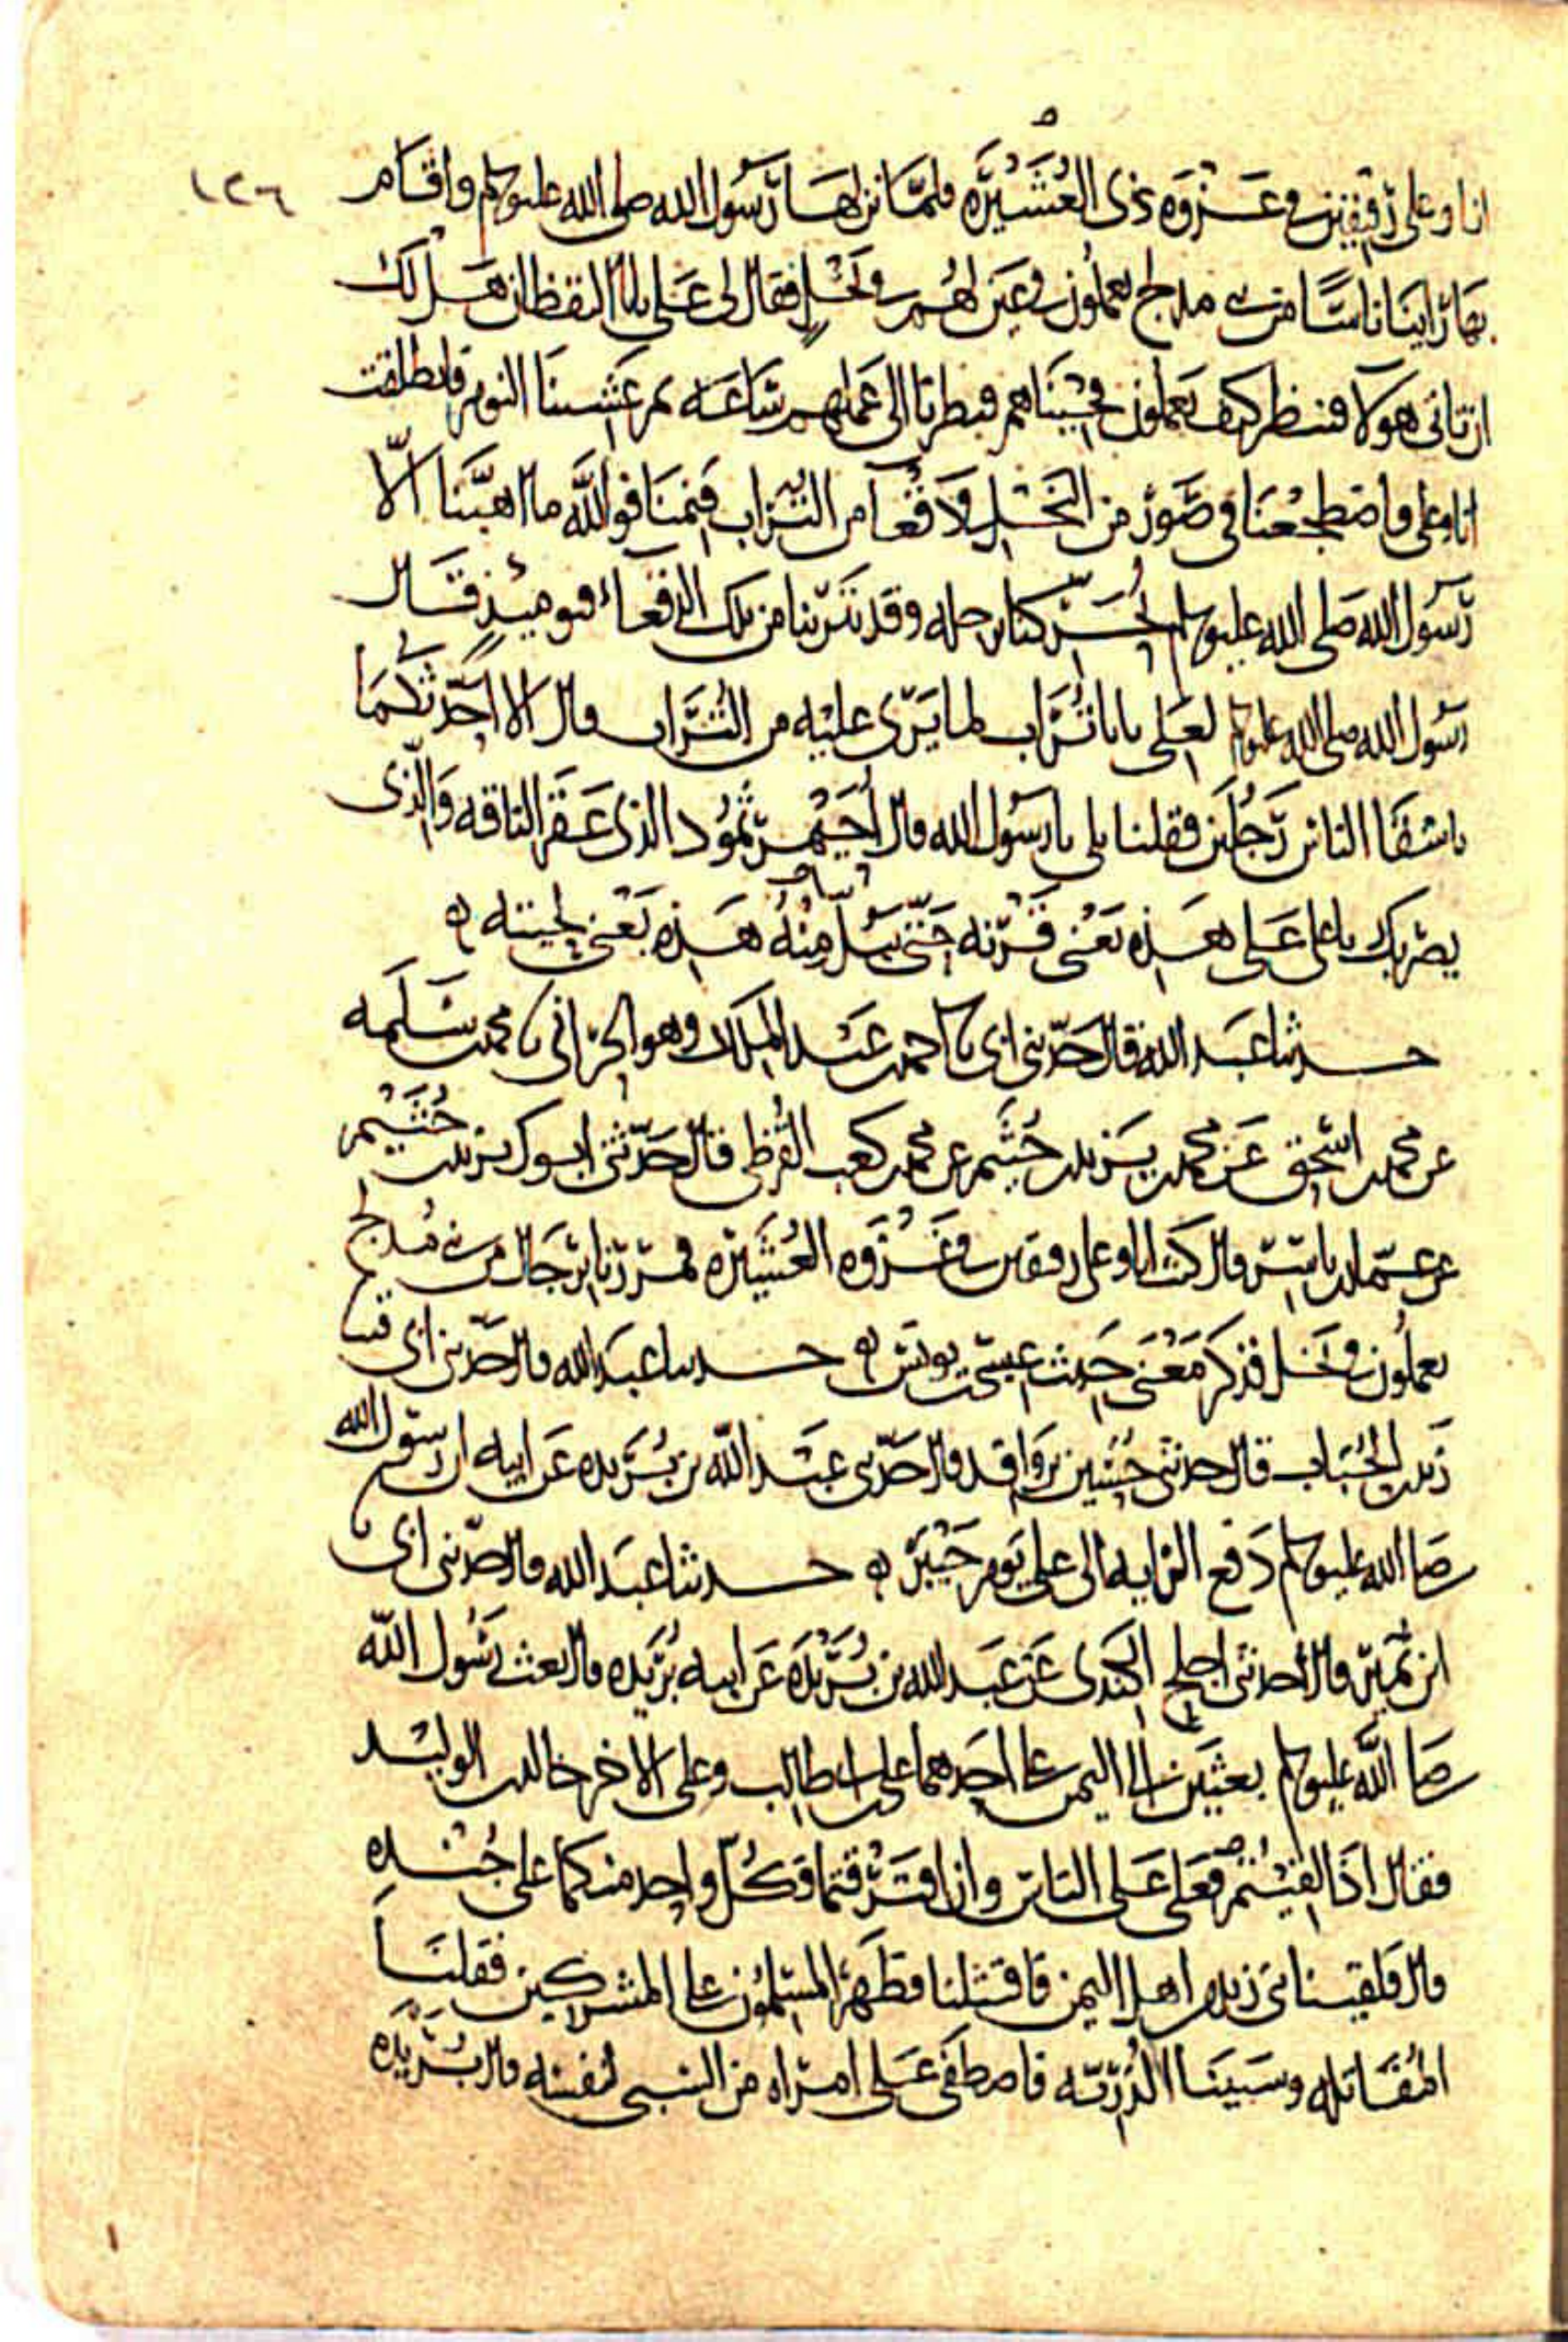 ١٢٦
انا وعلى رفيقين فى غزوه ذى العُشَيْرَه فلمّا نزلها رسول الله صلى الله عليه وسلم واقام
بها راينا ناسًا من بنى مدلج يعملون فى عين لهم فى نخلٍ فقال لى على يابا اليقظان هل لك
ان تاتى هولا فننظر كيف يعملون فجئناهم فنظرنا الى عملهم ساعه ثم غشينا النوم فانطلقت
انا وعلى فاضطجعنا فى صَوْر من النخل فى دقعآ من التراب فنمنا فوالله ما اهبّنا الّا
رسول الله صلى الله عليه وسلم يحركنا برجله وقد تتربنا من تلك الدقعاء فيوميذٍ قال
رسول الله صلى الله عليه وسلم لعلى يابا تُراب لما يَرى عليه من التُراب قال الا احدثكما
باشقا الناس رجلين فقلنا بلى يا رسول الله قال اُحَيْمر ثمود الذى عقر الناقه والّذى
يضربك يا على على هذه يعنى قرنه حتى تبلّ منه هذه يعنى لحيته ه
حدثنا عبد الله قال حدّثنى ابى نا احمد بن عبد الملك وهو الحرّانى نا محمد بن سلمه
عن محمد بن اسحق عن محمد بن يزيد بن خثيم عن محمد بن كعب القُرظى قال حدّثنى ابوك يزيد بن خُثَيْم
عن عمّار بن ياسر قال كنت انا وعلى رفيقين فى غَزْوه العُشَيْره فمررنا برجال من بنى مُدلج
يعملون فى نخل فذكر مَعْنى حديث عيسى بن يونس ه حدثنا عبد الله قال حدّثنى ابى قثنا
زيد بن الحُباب قال حدثنى حُسَين بن واقد قال حدّثنى عبد الله بن بُرَيده عن ابيه ان رسول الله
صلى الله عليه وسلم دفع الرايه الى على يوم خَيْبر ه حدثنا عبد الله قال حدّثنى ابى نا
ابن نُمَير قال حدثنى اجلح الكِندى عن عبد الله بن بُرَيْدَه عن ابيه بُرَيده قال بعث رسول الله
صلى الله عليه وسلم بعثين الى اليمن على احدهما على بن ابى طالب وعلى الاخر خالد بن الوليد
فقال اذا التقيتم فعلى على الناس وان افترقتما فكُلّ واحد منكما على جُنْدِه
قال فلقينا بنى زيد من اهل اليمن فاقتتلنا فظهر المسلمون على المشركين فقتلنا
المُقاتله وسبينا الذُرّيّه فاصطفى على امراه من السبى لنفسه قال بُرَيْدَه